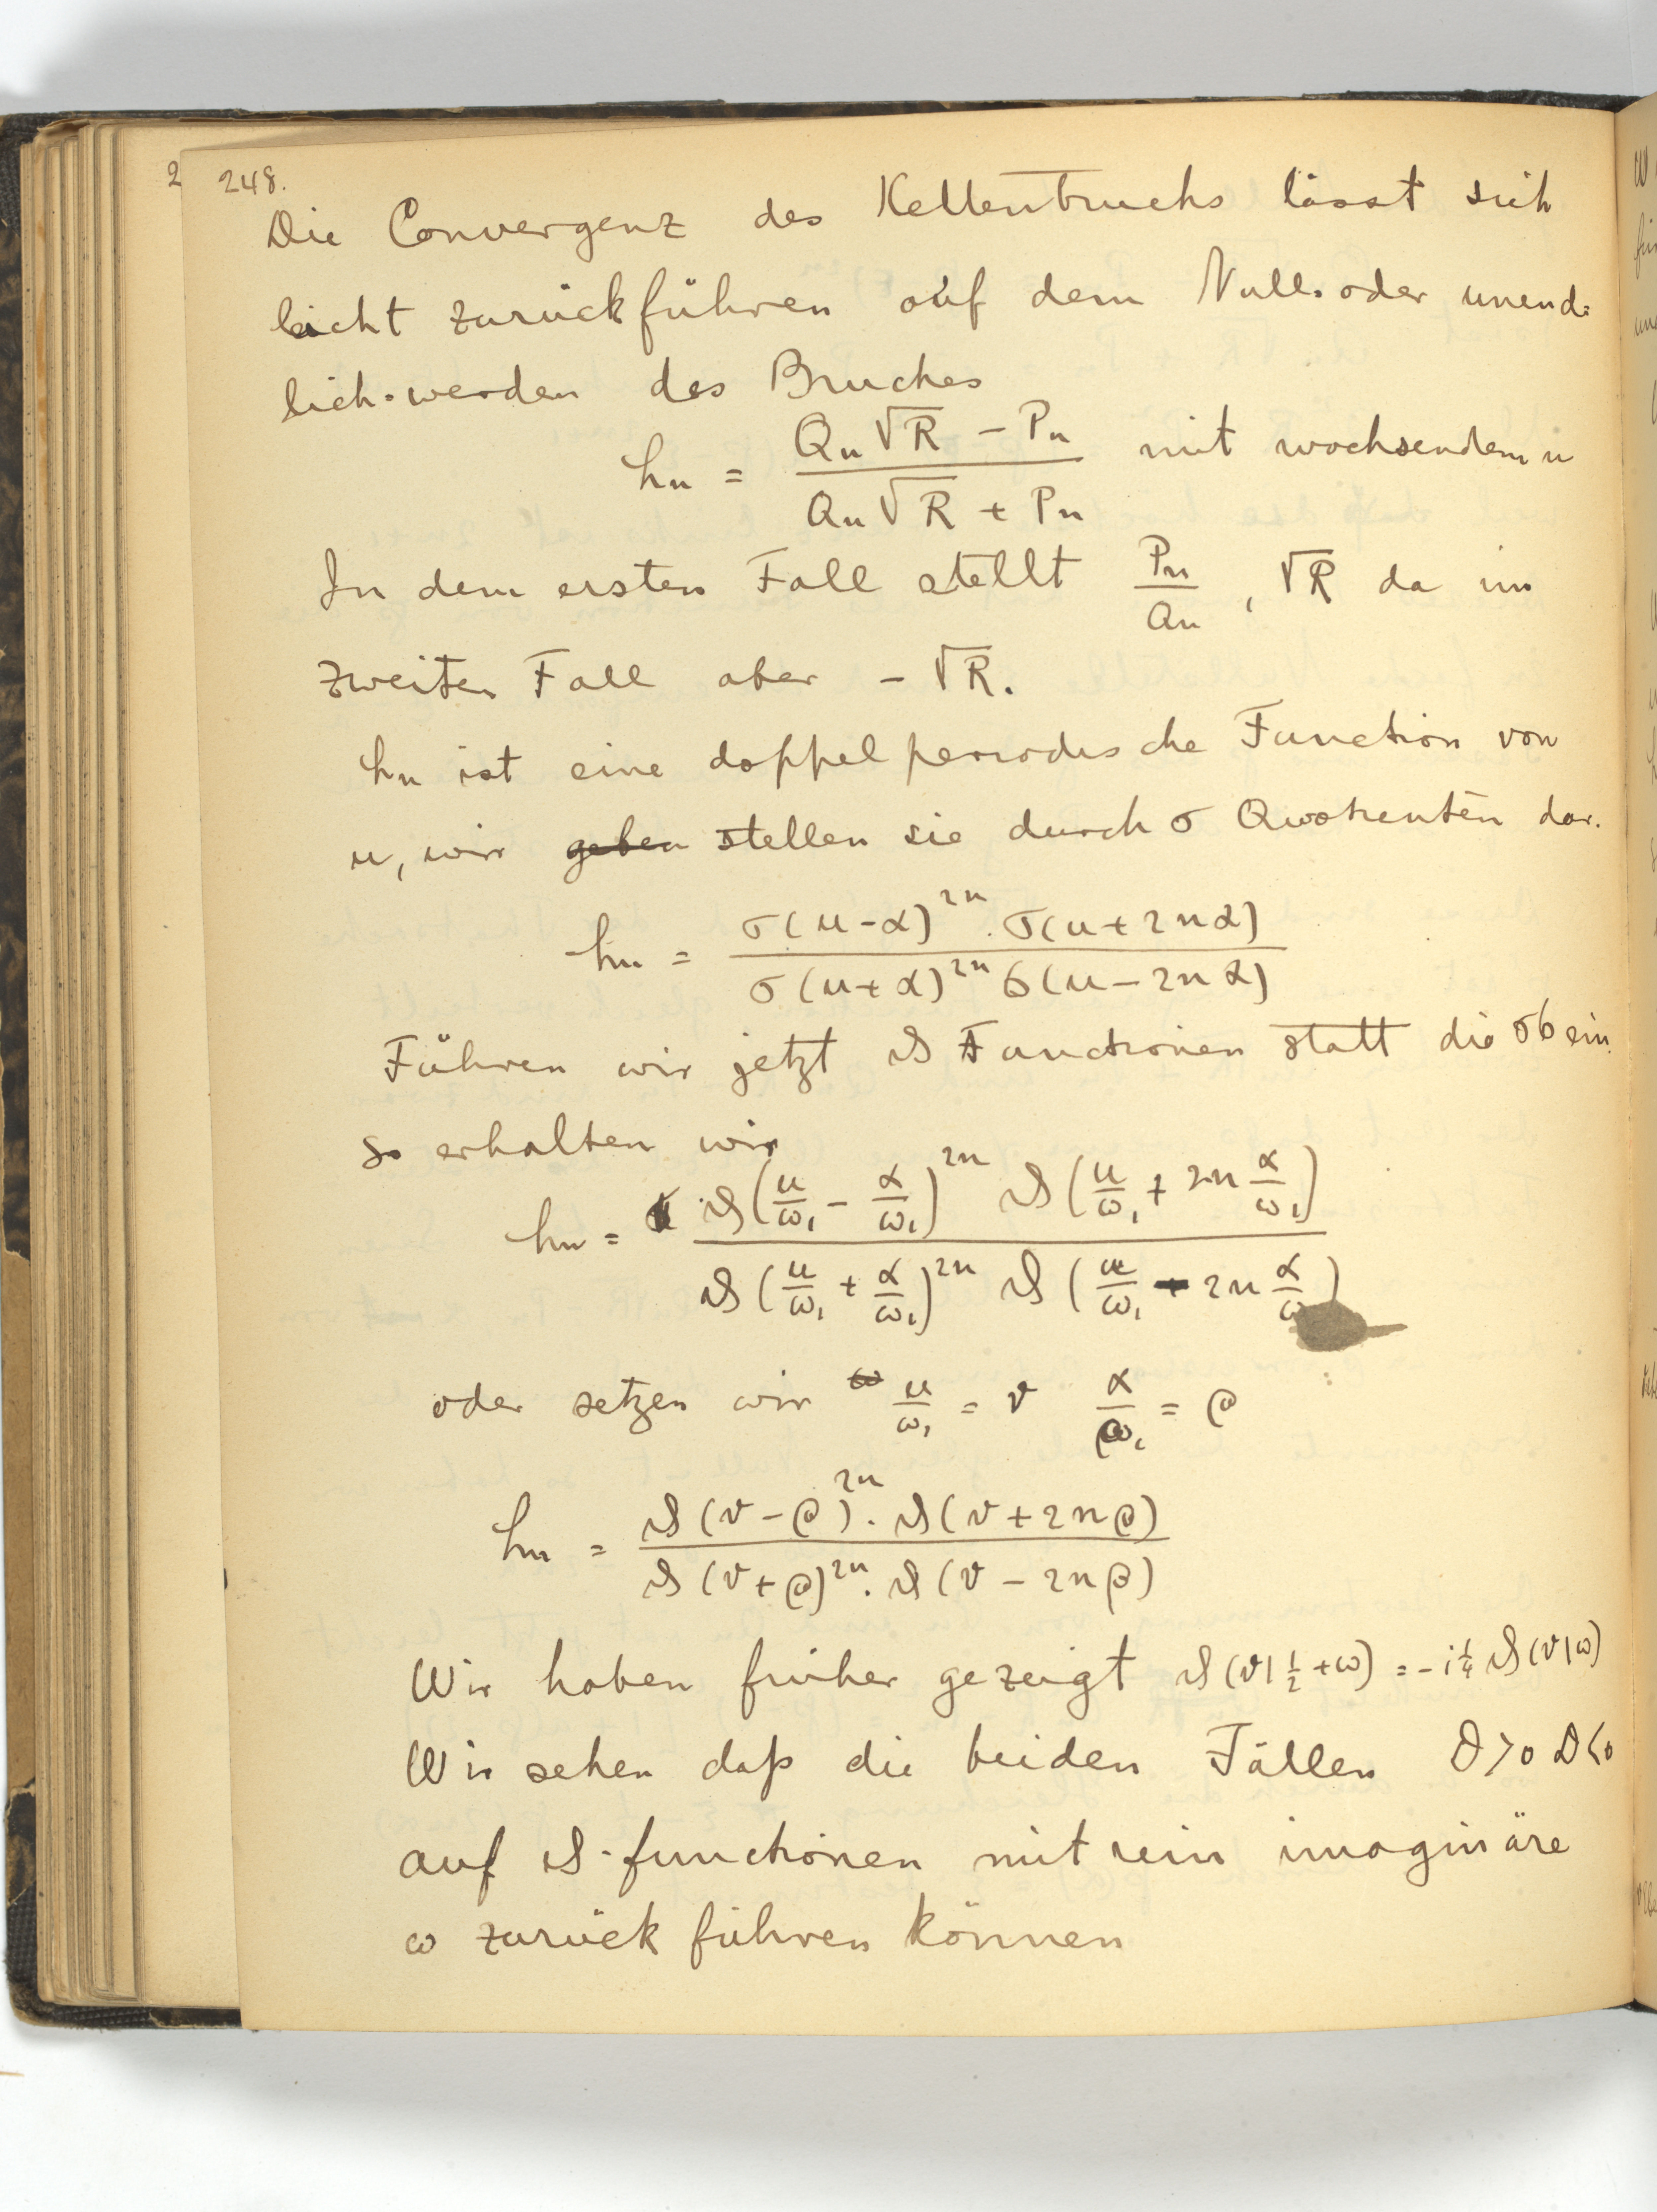 2 248.
Die Convergenz des Kettenbruchs lässt sich
leicht zurückführen auf dem Null-oder unend-
lich-werden des Bruches
hn = (Qn √R − Pn) / (Qn √R + Pn) mit wachsendem n
In dem ersten Fall stellt Pn/Qn, √R da im
zweiten Fall aber − √R.
hn ist eine doppelperiodische Function von
u, wir geben stellen sie durch σ Quotienten dar.
hn = (σ(u−α)^2n . σ(u+2nα)) / (σ(u+α)^2n σ(u−2nα))
Führen wir jetzt ϑ Functionen statt die σ ein
so erhalten wir
hn = (ϑ(u/ω₁ − α/ω₁)^2n ϑ(u/ω₁ + 2n α/ω₁)) / (ϑ(u/ω₁ + α/ω₁)^2n ϑ(u/ω₁ − 2n α/ω))
oder setzen wir u/ω₁ = v α/ω₁ = β
hn = (ϑ(v−β)^2n . ϑ(v+2nβ)) / (ϑ(v+β)^2n . ϑ(v−2nβ))
Wir haben früher gezeigt ϑ(v|½+ω) = −i^¼ ϑ(v|ω)
Wir sehen daß die beiden Fällen D>0 D<0
auf ϑ-functionen mit rein imaginäre
ω zurück führen können